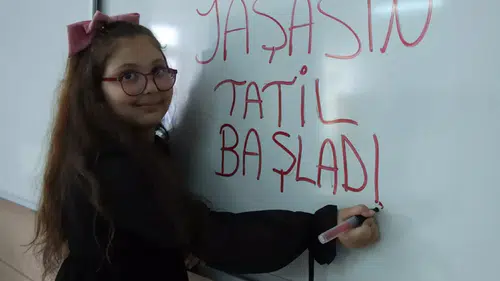 YAŞASIN
TATİL
BAŞLADI!